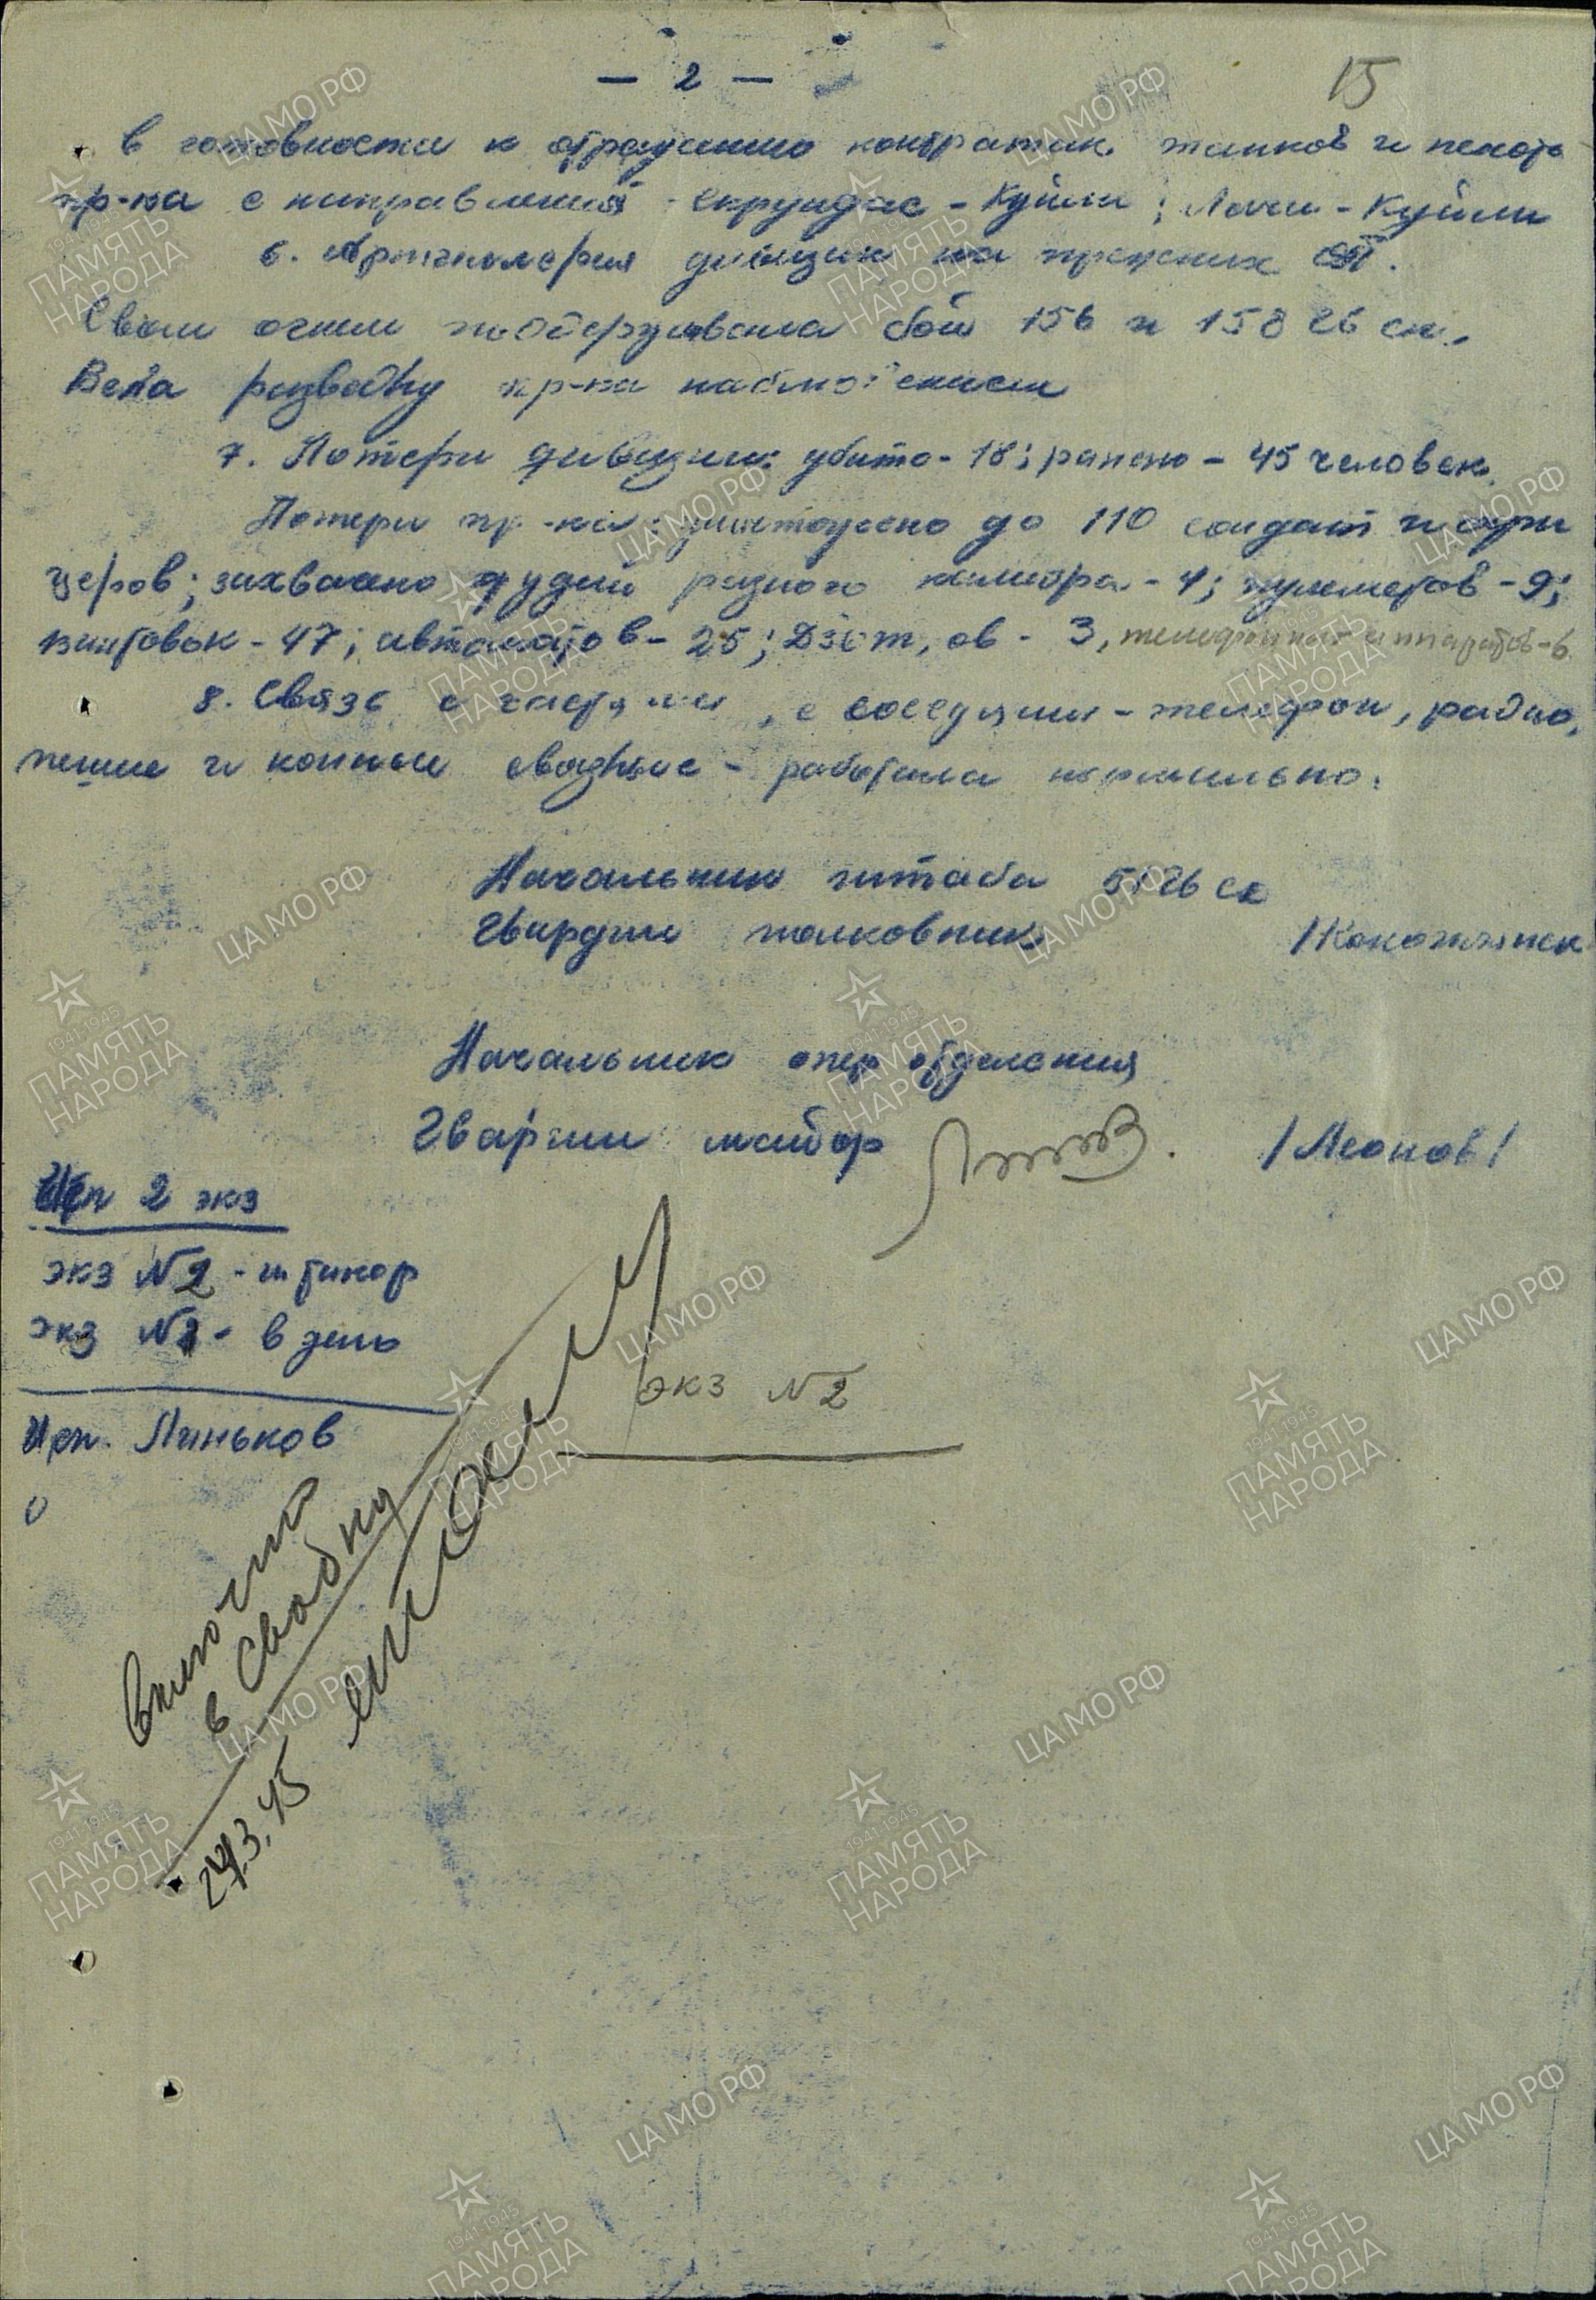 — 2 —
15
в готовности к отражению контратак танков и пехоты
пр-ка с направлений Скрундас - Куйли; Лачи - Куйли
6. Артиллерия дивизии на прежних ОП.
Своим огнем поддерживала бой 156 и 158 гв сп.
Вела разведку пр-ка наблюдением
7. Потери дивизии: убито - 18; ранено - 45 человек.
Потери пр-ка: уничтожено до 110 солдат и офи
церов; захвачено орудий разного калибра - 4; пулеметов - 9;
винтовок - 47; автоматов - 25; Дзот, ов - 3, телефонных аппаратов - 6
8. Связь с частями, с соседями - телефон, радио,
пешие и конные связные - работала нормально.
Начальник штаба 51 гв сд
Гвардии полковник
Начальник опер отделения
Гвардии майор /Леонов/
Исп 2 экз
экз №2 - штакор
экз №1 - в дело
Исп. Линьков
экз №2
Включить
в сводку
24.3.45
ЦАМО РФ
1941-1945
ПАМЯТЬ
НАРОДА